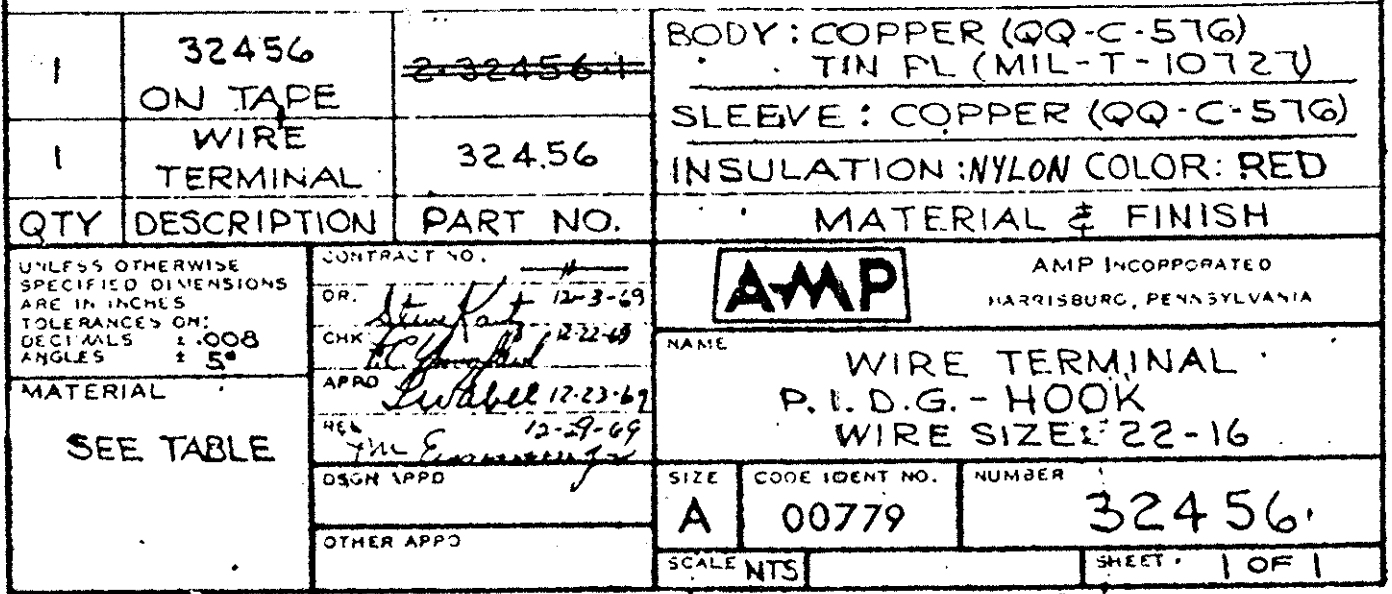 1
32456
ON TAPE
2-32456-1
BODY: COPPER (QQ-C-576)
TIN PL (MIL-T-10727)
SLEEVE: COPPER (QQ-C-576)
1
WIRE
TERMINAL
32456
INSULATION: NYLON COLOR: RED
QTY DESCRIPTION PART NO. MATERIAL & FINISH
UNLESS OTHERWISE
SPECIFIED DIMENSIONS
ARE IN INCHES
TOLERANCES ON:
DECIMALS ± .008
ANGLES ± 5°
MATERIAL
SEE TABLE
CONTRACT NO.
DR. 12-3-69
CHK 12-22-69
APPD 12-23-69
REL 12-29-69
DSGN APPD
OTHER APPD
AMP
AMP INCORPORATED
HARRISBURG, PENNSYLVANIA
NAME
WIRE TERMINAL
P.I.D.G. - HOOK
WIRE SIZE: 22-16
SIZE
A
CODE IDENT NO.
00779
NUMBER
32456
SCALE NTS
SHEET 1 OF 1